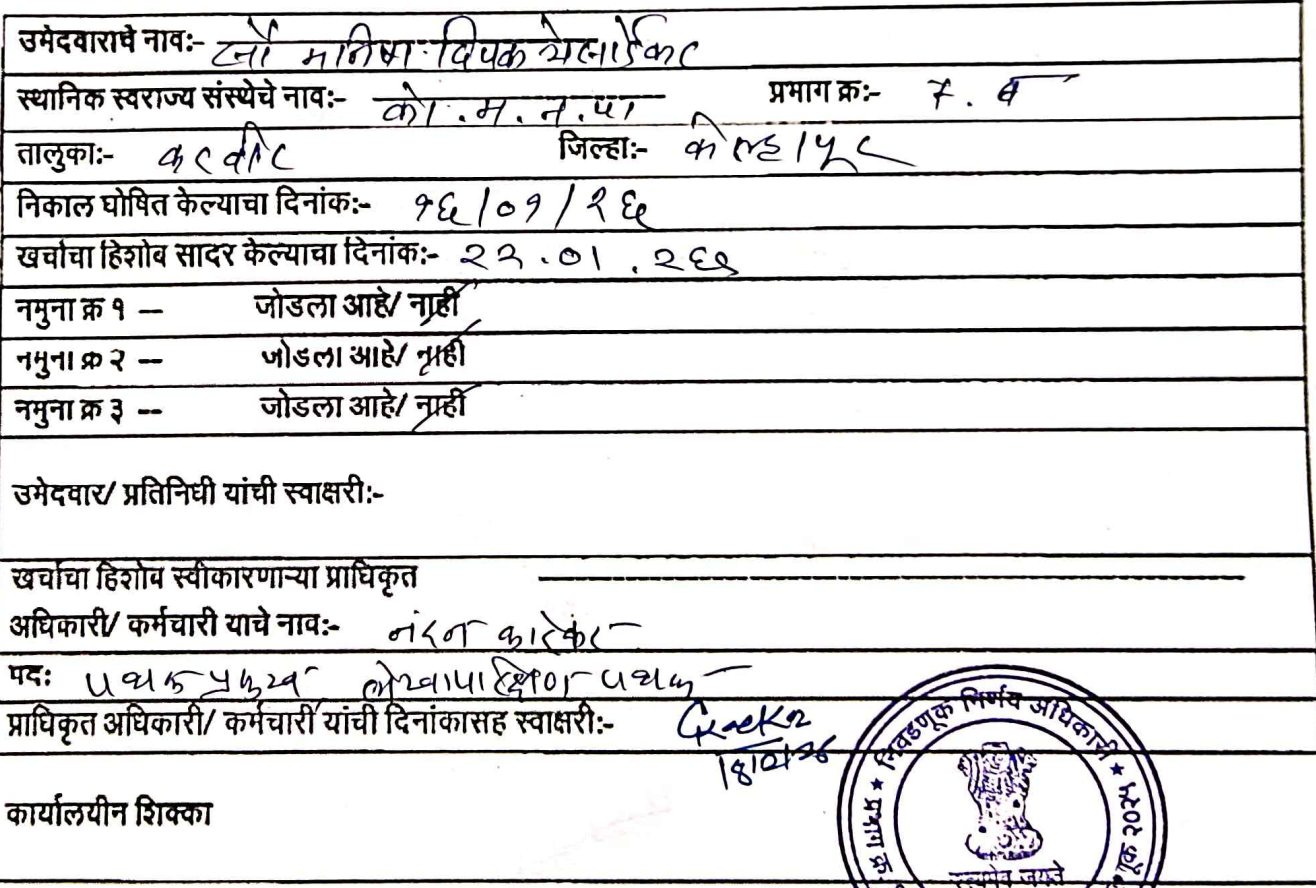 उमेदवाराचे नाव:- सौ मनिषा दिपक
स्थानिक स्वराज्य संस्थेचे नाव:- को.म.न.पा प्रभाग क्र:- ७. ब
तालुका:- करवीर जिल्हा:- कोल्हापूर
निकाल घोषित केल्याचा दिनांक:- १६/०१/२६
खर्चाचा हिशोब सादर केल्याचा दिनांक:- २२.०१.२६
नमुना क्र १ -- जोडला आहे/ नाही
नमुना क्र २ -- जोडला आहे/ नाही
नमुना क्र ३ -- जोडला आहे/ नाही
उमेदवार/ प्रतिनिधी यांची स्वाक्षरी:-
खर्चाचा हिशोब स्वीकारणाऱ्या प्राधिकृत
अधिकारी/ कर्मचारी याचे नाव:-
पदः पथक प्रमुख लेखापरिक्षण पथक
प्राधिकृत अधिकारी/ कर्मचारी यांची दिनांकासह स्वाक्षरी:-
कार्यालयीन शिक्का
निवडणूक निर्णय अधिकारी
सत्यमेव जयते